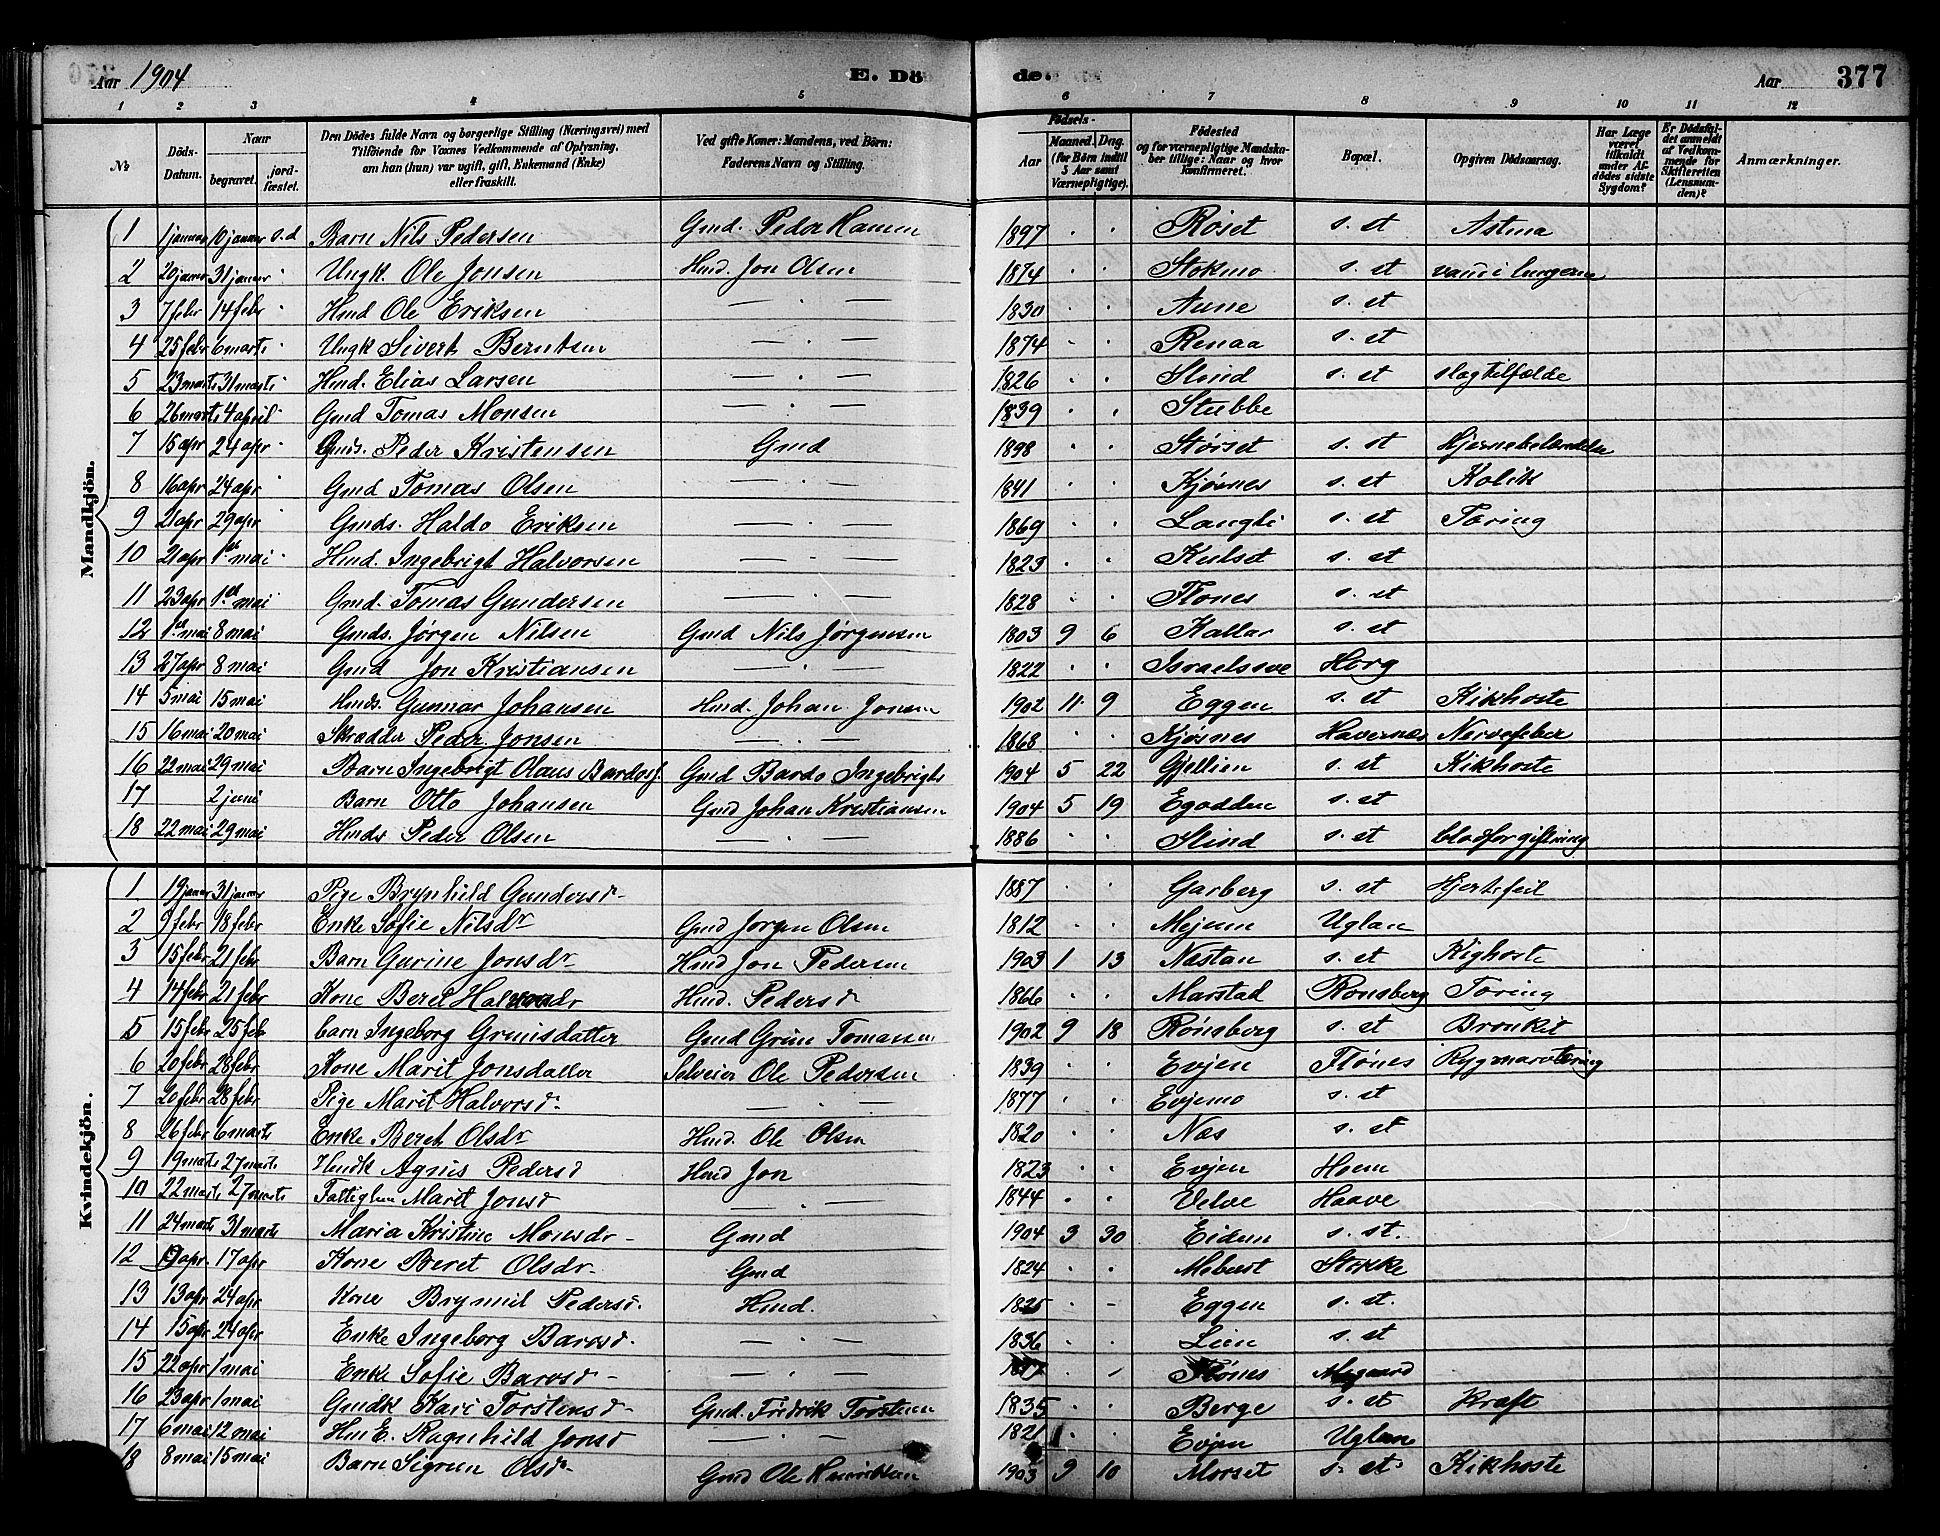 Aar 1904 E. Döde. Aar 377
1 2 3 4 5 6 7 8 9 10 11 12
No Döds-Datum. Naar begravet. jordfæstet. Den Dödes fulde Navn og borgerlige Stilling (Næringsvei) med Tilföiende for Voxnes Vedkommende af Oplysning, om han (hun) var ugift, gift, Enkemand (Enke) eller fraskilt. Ved gifte Koner: Mandens, ved Börn: Faderens Navn og Stilling. Födsels- Aar Maaned. Dag. (for Börn indtil 5 Aar samt Værnepligtige). Födested og for værnepligtige Mandskaber tillige: Naar og hvor konfirmeret. Bopæl. Opgiven Dödsaarsag. Har Læge været tilkaldt under Afdödes sidste Sygdom? Er Dödsfaldet anmeldt af Vedkommende for Skifteretten (Lensmanden)? Anmærkninger.
Mandkjön.
1 1 januar 10 januar s.d Barn Nils Pedersen Gmd. Peder Hansen 1897 " " Røset s. st Astma
2 20 januar 31 januar " Ungk. Ole Jonsen Hmd. Jon Olsen 1874 " " Stokmo s. st vand i lungerne
3 7 febr 14 febr " Hmd Ole Eriksen — " — 1830 " " Aune s. st
4 25 febr 6 marts " Ungk Sivert Berntsen — " — 1874 " " Renaa s. st
5 23 marts 31 marts " Hmd. Elias Larsen — " — 1826 " " Slind s. st slagtilfælde
6 26 marts 4 april " Gmd Tomas Monsen — " — 1839 " " Stubbe
7 15 apr 24 apr " Gmds. Peder Kristensen Gmd 1898 " " Størset s. st Hjernebetændelse
8 16 apr 24 apr " Gmd Tomas Olsen — " — 1841 " " Kjøsnes s. st Kolik
9 21 apr 29 apr " Gmds. Haldo Eriksen — " — 1869 " " Langli s. st Tæring
10 21 apr 1.st mai " Hmd. Ingebrigt Halvorsen — " — 1823 " " Kulset s. st
11 23 apr 1.st mai Gmd. Tomas Gundersen — " — 1828 " " Flones s. st
12 1.st mai 8 mai Gmds. Jørgen Nilsen Gmd Nils Jørgensen 1803 9 6 Kallar s. st
13 27 apr 8 mai Gmd Jon Kristiansen — " — 1822 " " Israelssve Horg
14 5 mai 15 mai Hmds. Gunnar Johansen Hmd. Johan Jonsen 1902 11 9 Eggen s. st Kikhoste
15 16 mai 20 mai Skrædder Peder Jonsen — " — 1868 " " Kjøsnes Havernæs Nervefeber
16 22 mai 29 mai Barn Ingebrigt Olaus Bardosf. Gmd Bardo Ingebrigts 1904 5 22 Gjellien s. st Kikhoste
17 2 juni Barn Otto Johansen Gmd Johan Kristiansen 1904 5 19 Egodden s. st
18 22 mai 29 mai Hmds Peder Olsen — " — 1886 " " Slind s. st blodforgiftning
Kvindekjön.
1 19 januar 31 januar Pige Brynhild Gundersd 1887 " " Garberg s. st Hjertefeil
2 9 febr 18 febr Enke Sofie Nilsdr Gmd Jørgen Olsen 1812 " " Mejeun Uglan
3 15 febr 21 febr Barn Gurine Jonsdr Hmd Jon Pedersen 1903 1 13 Næstan s. st Kighoste
4 14 febr 21 febr Kone Beret Halvorsdr Hmd. Pedersd 1866 " " Marstad Rønsberg Tæring
5 15 febr 25 feb barn Ingeborg Grimsdatter Gmd Grim Tomassen 1902 9 18 Rønsberg s. st Bronkit
6 20 febr 28 febr Kone Marit Jonsdatter Selveier Ole Pedersen 1839 " " Evjen Flønes Rygmarvtæring
7 20 febr 28 febr Pige Marit Halvorsd. — " — 1877 " " Evjemo s. st
8 26 febr 6 marts Enke Beret Olsdr Hmd. Ole Olsen 1820 " " Næs s. st
9 19 marts 27 marts Hmdk Agnis Pedersd Hmd Jon 1823 " " Evjen Hoem
10 22 marts 27 marts Fattiglem Marit Jonsd — " — 1844 " " Velve Haave
11 24 marts 31 marts Maria Kristine Monsdr Gmd 1904 3 30 Eidem s. st.
12 9 apr. 17 apr Kone Beret Olsdr Gmd 1824 " " Mebust Stokke
13 13 apr 24 apr Kone Brynnil Pedersd. Hmd. 1825 " - Eggen s. st.
14 15 apr 24 apr Enke Ingeborg Barosd. — " — 1836 " " Lien s. st
15 22 apr 1 mai Enke Sofie Barosd — " — Flønes Megaard
16 23 apr 1 mai Gmdk Kari Torstensd Gmd. Fredrik Torstensen 1835 " " Berge s. st Kræft
17 6 mai 12 mai Hm E. Ragnhild Jonsd — " — 1821 Evjen Uglan
18 8 mai 15 mai Barn Sigrun Olsdr Gmd Ole Henriksen 1903 9 10 Morset s. st Kikhoste